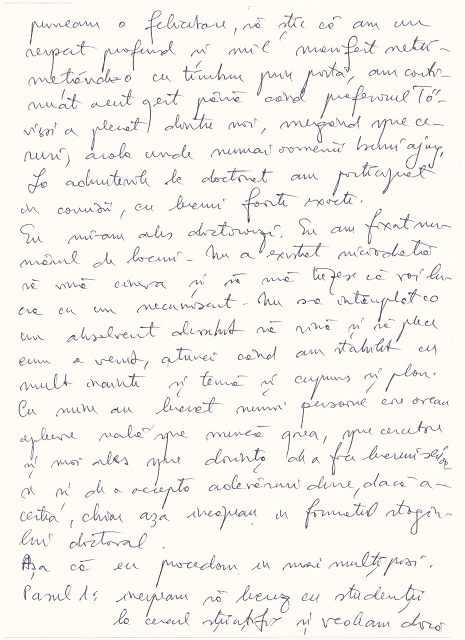 puneam o felicitare, să știe că am un
respect profund și mi-l manifest netri-
mețându-o cu timbru prin poștă, am conti-
nuat acest gest până când profesorul Tö-
vissi a plecat dintre noi, mergând spre ce-
ruri, acolo unde numai oamenii buni ajung.
La admiterile la doctorat am participat
în comisii, cu lucruri foarte exacte.
Eu mi-am ales doctoranzi. Eu am fixat nu-
mărul de locuri. Nu a existat niciodată
să vină cineva și să mă trezesc că voi lu-
cra cu un necunoscut. Nu s-a întâmplat ca
un absolvent să vină și să plece
cum a venit, atunci când am stabilit cu
mult înainte și temă și cuprins și plan.
Cu mine au lucrat numai persoane care aveau
aplecare spre muncă grea, spre cercetare
și mai ales spre dorința de a face lucruri
și de a accepta adevăruri dure, dacă a-
cestea, chiar așa începeau în formatul stagiu-
lui doctoral.
Așa că eu procedam în mai mulți pași.
Pasul 1: începeam să lucrez cu studenții
la cercul științific și vedeam dacă